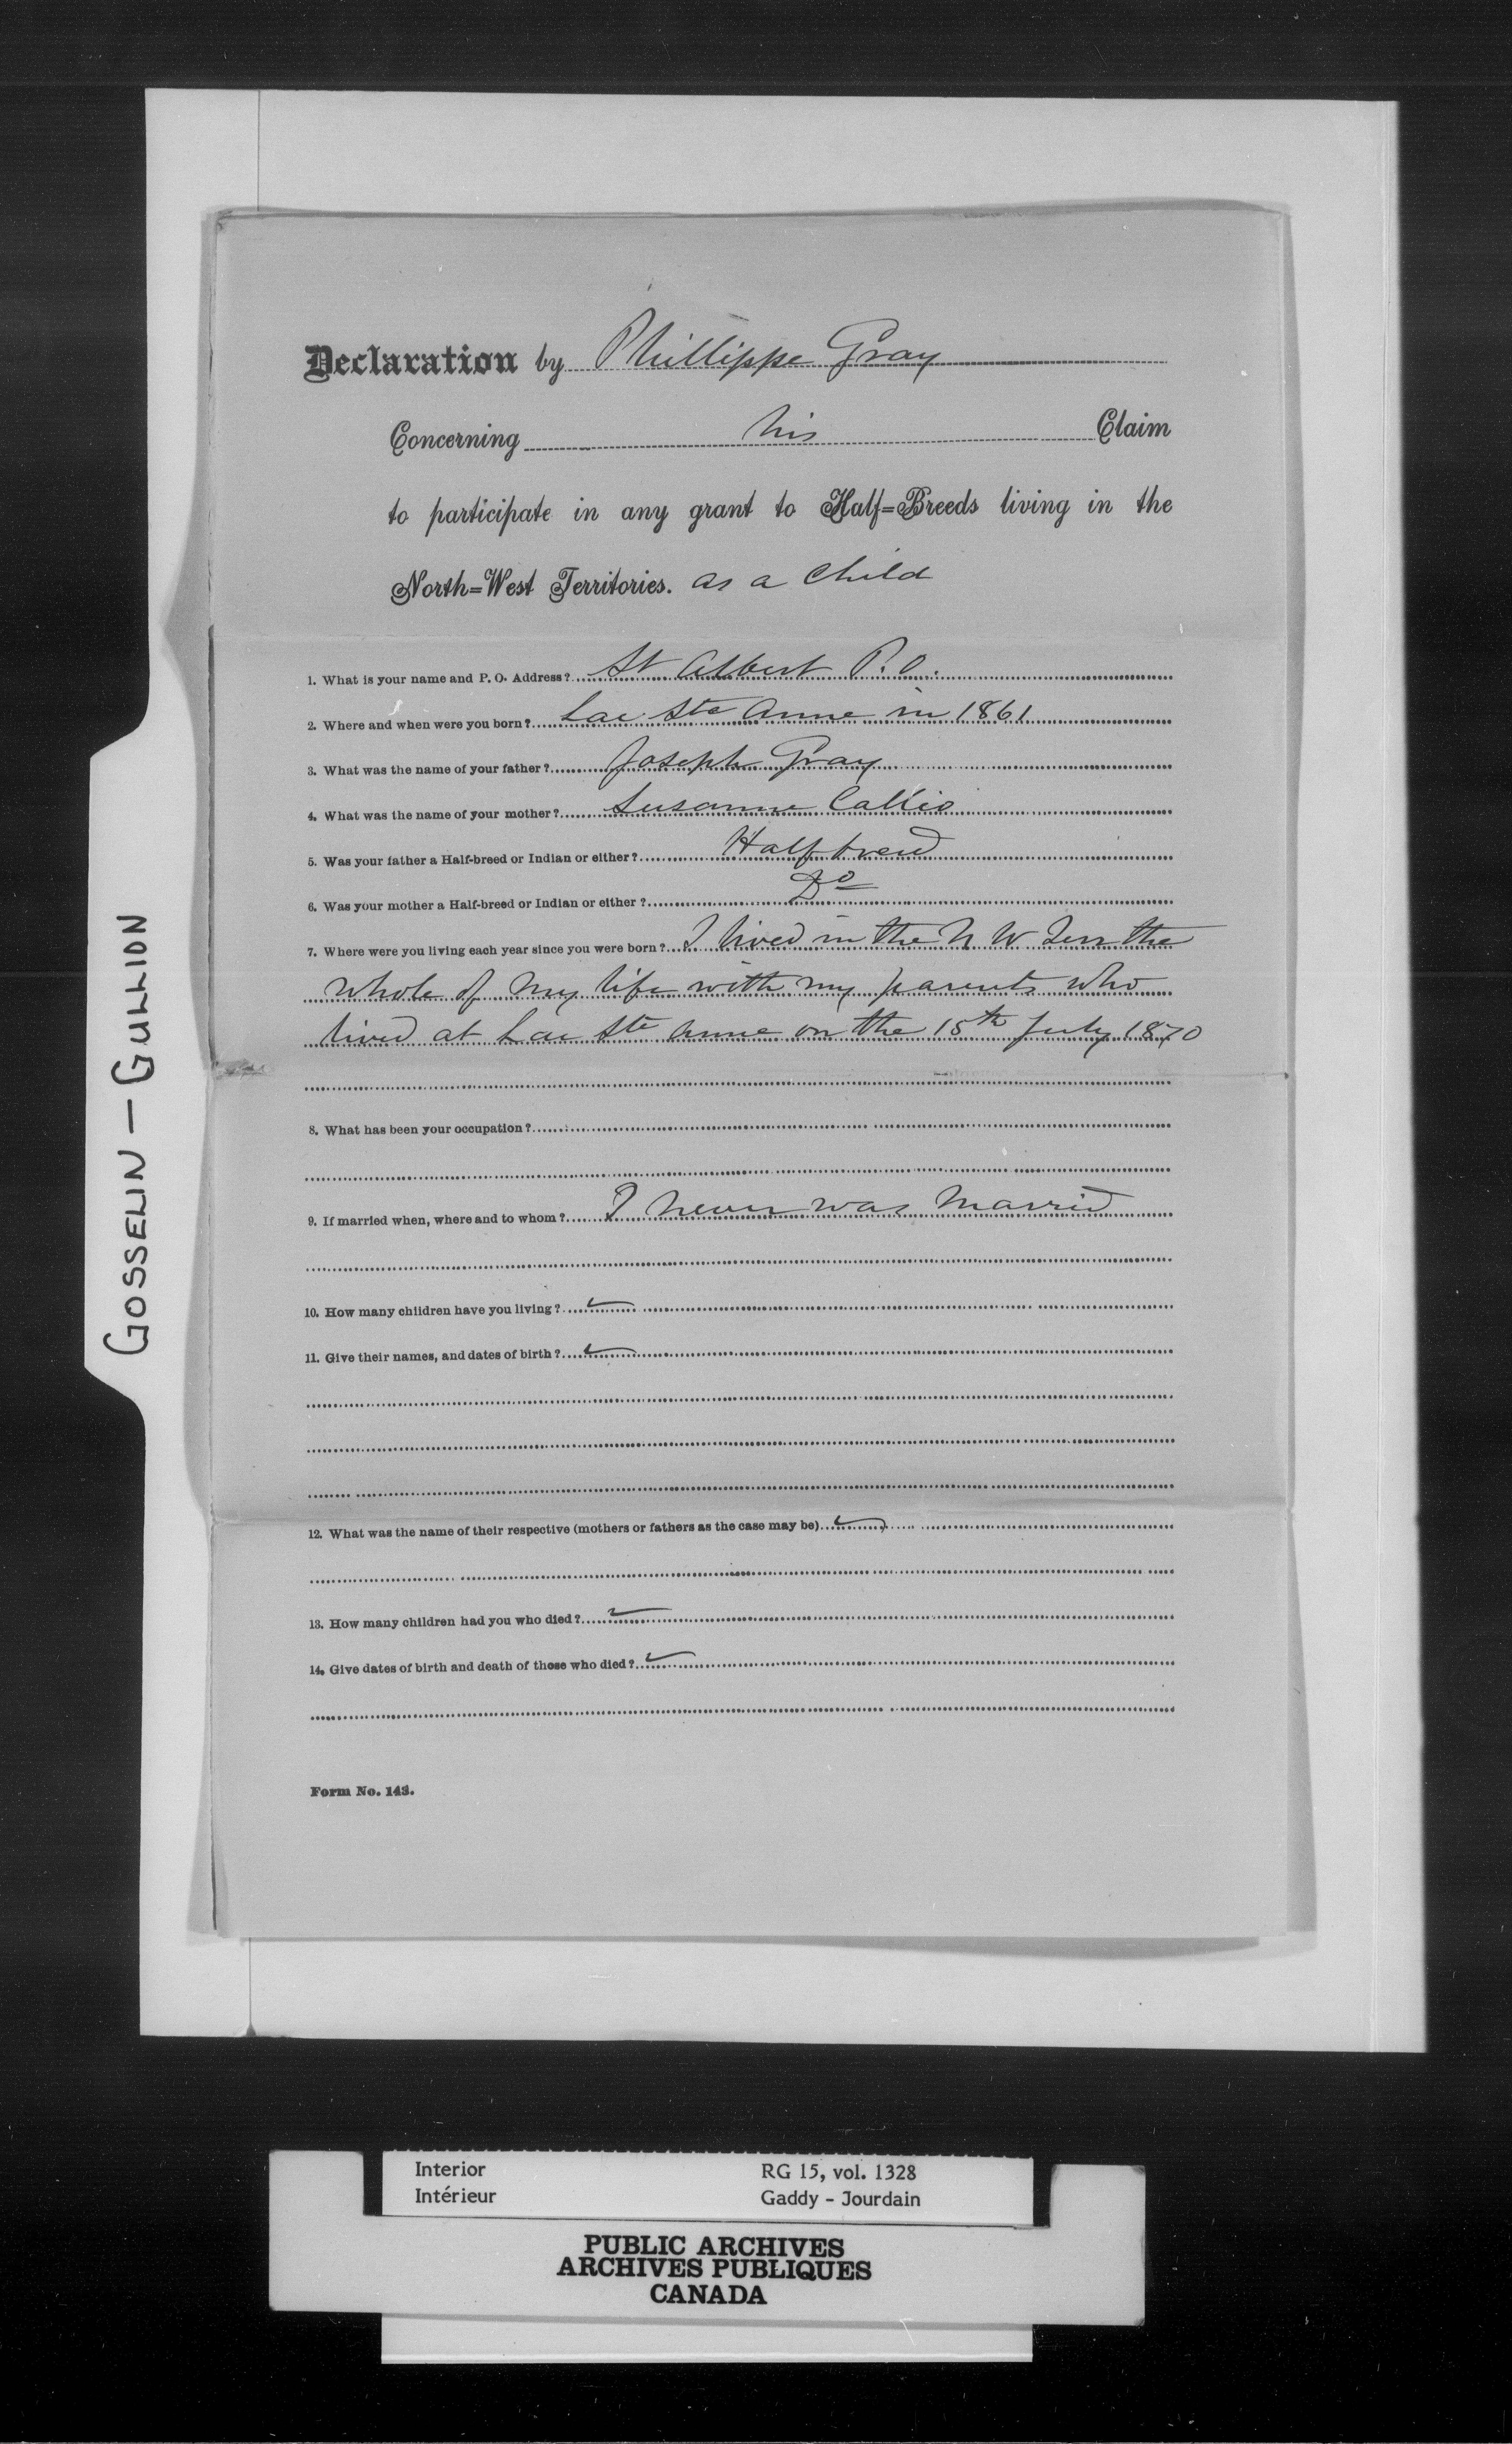 Declaration by Phillippe Gray
Concerning his Claim
to participate in any grant to Half=Breeds living in the
North=West Territories. as a Child
1. What is your name and P. O. Address? St Albert P.O.
2. Where and when were you born? Lac Ste Anne in 1861
3. What was the name of your father? Joseph Gray
4. What was the name of your mother? Susanne Callio
5. Was your father a Half-breed or Indian or either? Halfbreed
6. Was your mother a Half-breed or Indian or either? Do
7. Where were you living each year since you were born? I lived in the N W Terr the
whole of my life with my parents who
lived at Lac Ste Anne on the 15th July 1870
8. What has been your occupation?
9. If married when, where and to whom? I never was Married
10. How many children have you living?
11. Give their names, and dates of birth?
12. What was the name of their respective (mothers or fathers as the case may be)
13. How many children had you who died?
14. Give dates of birth and death of those who died?
Form No. 143.
GOSSELIN — GULLION
Interior RG 15, vol. 1328
Intérieur Gaddy - Jourdain
PUBLIC ARCHIVES
ARCHIVES PUBLIQUES
CANADA